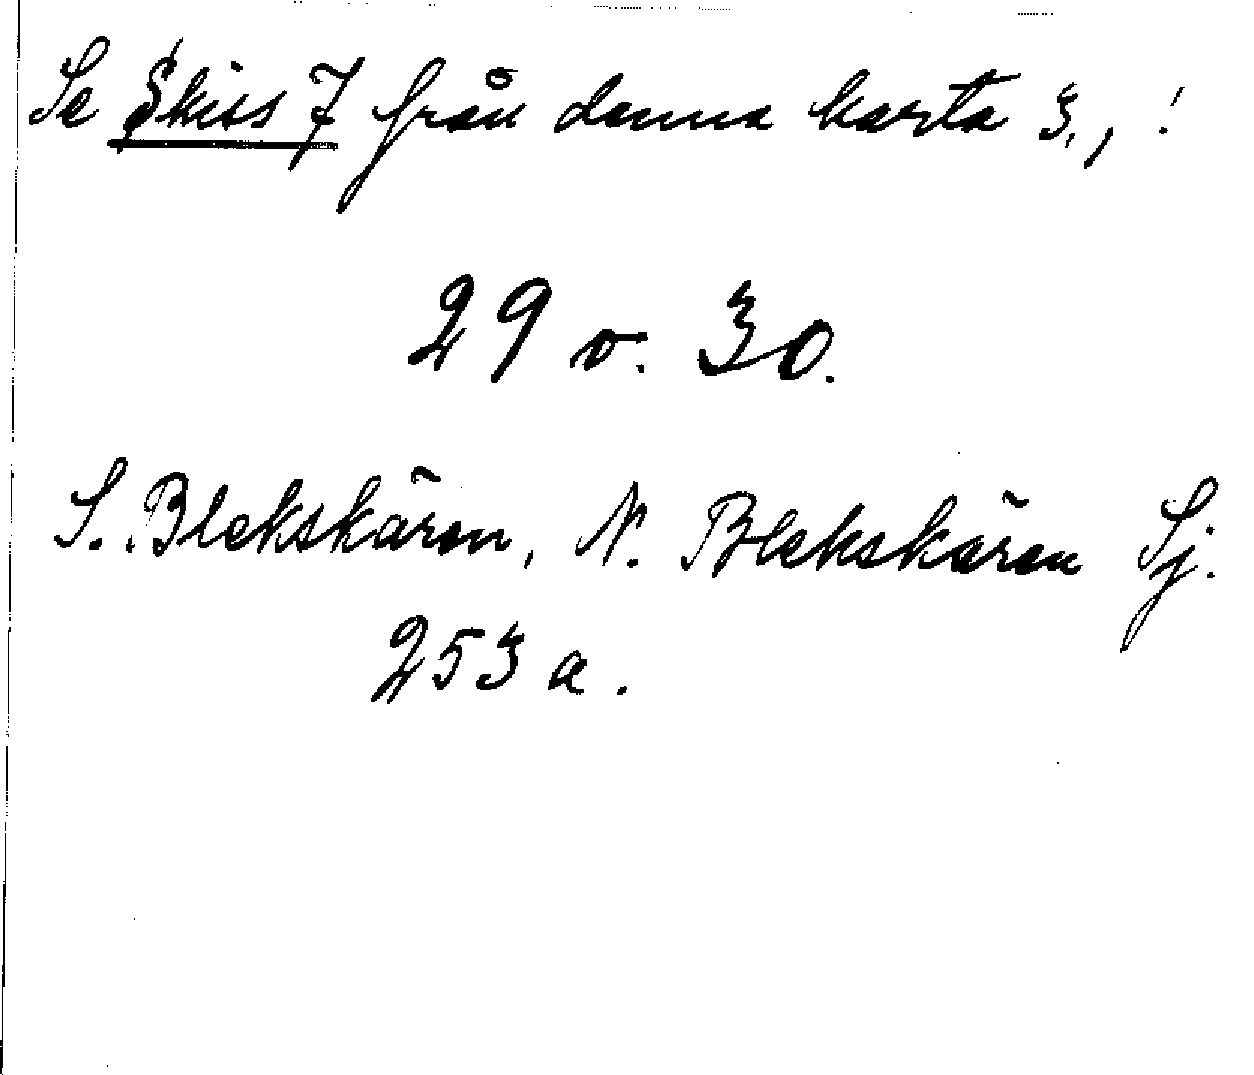 Se Skiss 7 från denna karta 3, !
29 o. 30.
S. Blekskären, N. Blekskären Sj.
253 a.